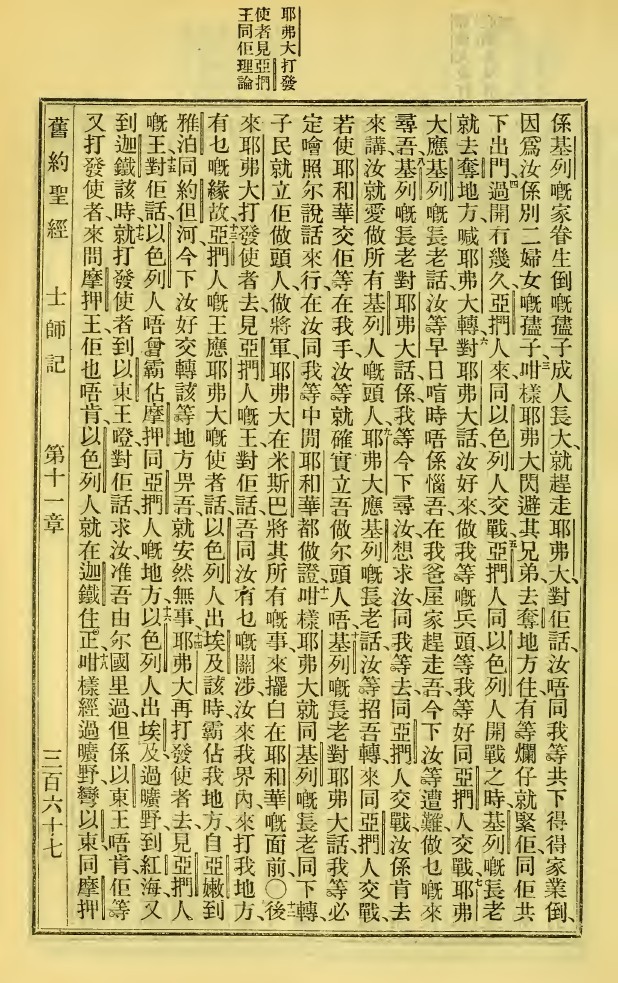 耶弗大打發
使者見亞捫
王同佢理論
係基列嘅家眷生倒嘅孻子成人長大、就趕走耶弗大對佢話、汝唔同我等共下得得家業倒、
因爲汝係別二婦女嘅孻子三咁樣耶弗大閃避其兄弟去奪地方住有等爛仔就緊佢同佢共
下出門、四過開冇幾久亞捫人來同以色列人交戰五亞捫人同以色列人開戰之時基列嘅長老
就去奪地方喊耶弗大轉六對耶弗大話汝好來做我等嘅兵頭等我等好同亞捫人交戰七耶弗
大應基列嘅長老話汝等早日喑時唔係惱吾在我爸屋家趕走吾今下汝等遭難做乜嘅來
尋吾八基列嘅長老對耶弗大話係我等今下尋汝想求汝同我等去同亞捫人交戰汝係肯去
來講汝就愛做所有基列人嘅頭人九耶弗大應基列嘅長老話汝等招吾轉來同亞捫人交戰、
若使耶和華交佢等在我手汝等就確實立吾做尔頭人唔十基列嘅長老對耶弗大話我等必
定噲照尔說話來行在汝同我等中間耶和華都做證十一咁樣耶弗大就同基列嘅長老同下轉、
子民就立佢做頭人做將軍耶弗大在米斯巴將其所有嘅事來擺白在耶和華嘅面前〇十二後
來耶弗大打發使者去見亞捫人嘅王對佢話、吾同汝有乜嘅關涉汝來我界內來打我地方、
有乜嘅緣故十三亞捫人嘅王應耶弗大嘅使者話以色列人出埃及該時霸佔我地方自亞嫩到
雅泊同約但河今下汝好交轉該等地方畀吾就安然無事十四耶弗大再打發使者去見亞捫人
嘅王十五對佢話以色列人唔曾霸佔摩押同亞捫人嘅地方十六以色列人出埃及過曠野到紅海又
到迦鐵該時十七就打發使者到以東王嶝對佢話求汝准吾由尔國里過但係以東王唔肯佢等
又打發使者來問摩押王佢也唔肯以色列人就在迦鐵住正十八咁樣經過曠野彎以東同摩押
舊約聖經　士師記　第十一章　三百六十七